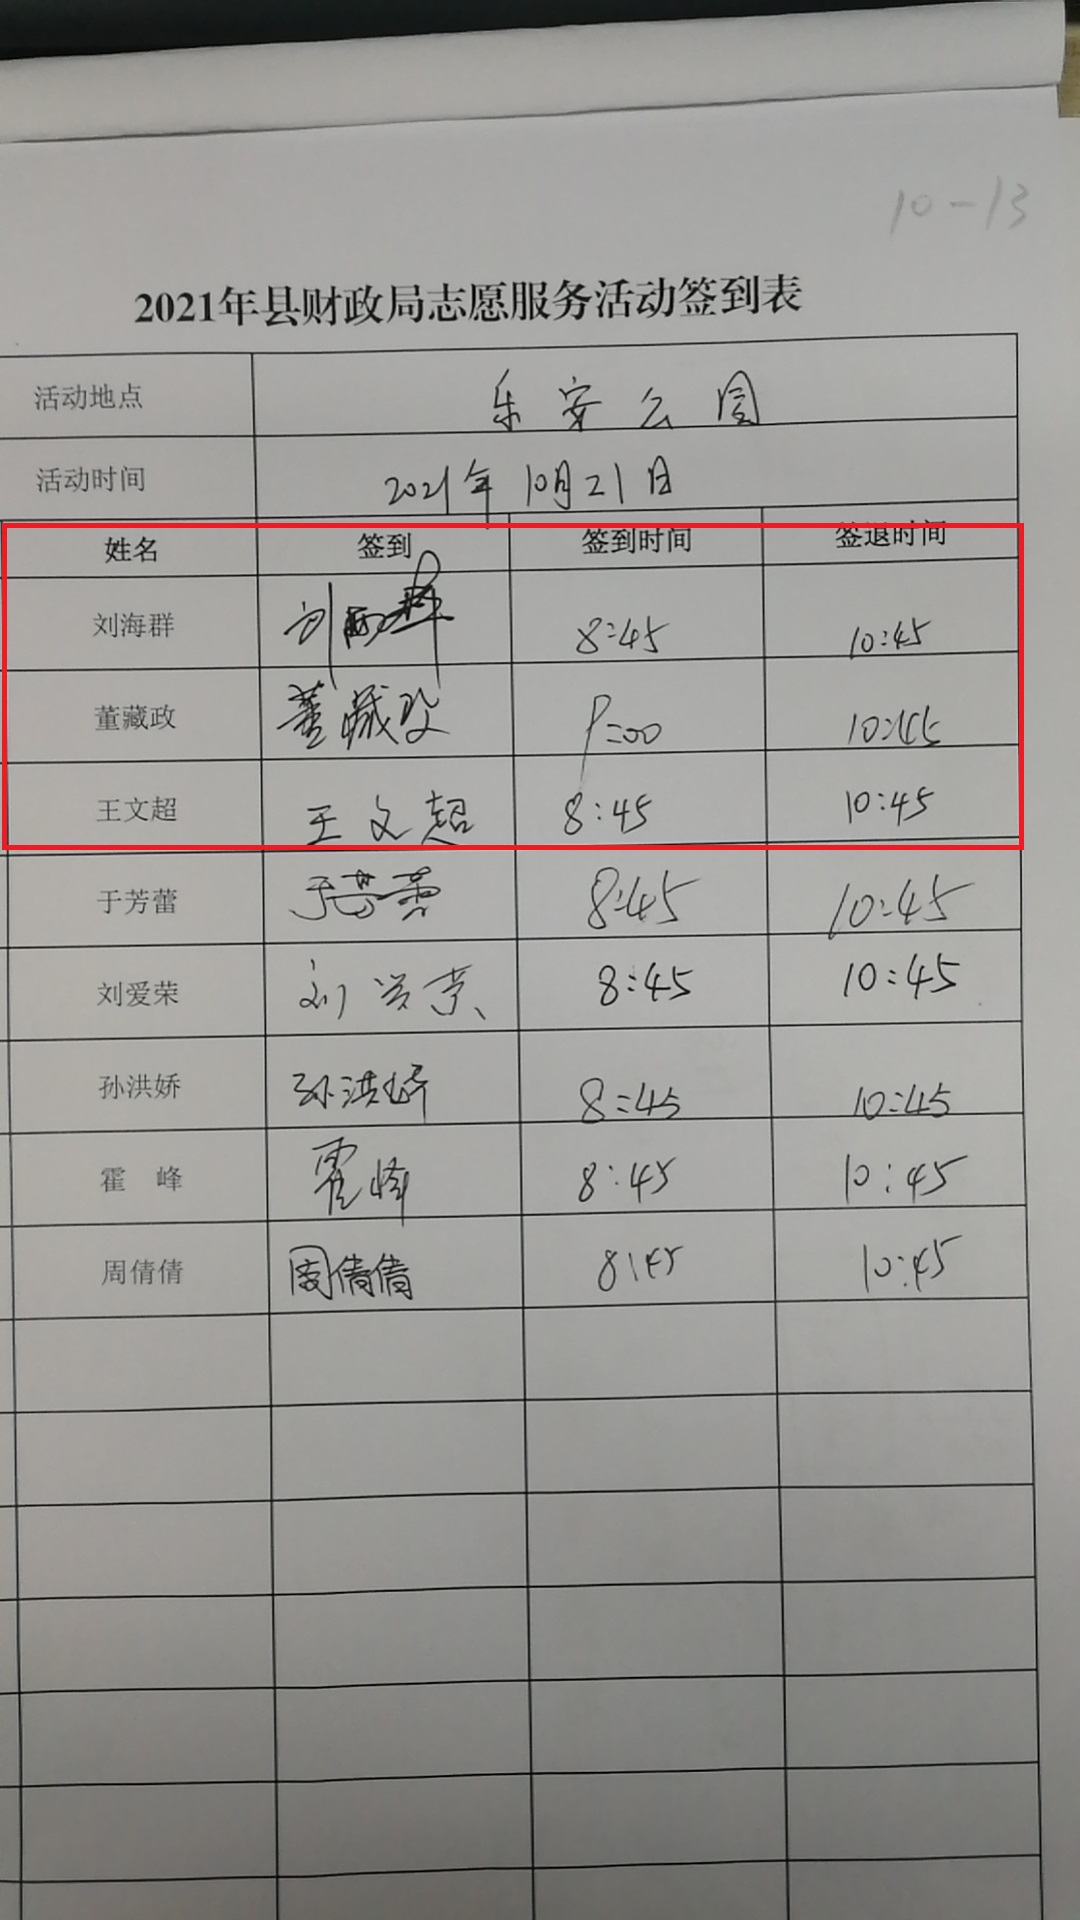 10-13
2021年县财政局志愿服务活动签到表
活动地点 乐安公园
活动时间 2021年10月21日
姓名 签到 签到时间 签退时间
刘海群 刘海群 8:45 10:45
董藏政 董藏政 9:00 10:45
王文超 王文超 8:45 10:45
于芳蕾 于芳蕾 8:45 10:45
刘爱荣 刘爱荣 8:45 10:45
孙洪娇 孙洪娇 8:45 10:45
霍 峰 霍峰 8:45 10:45
周倩倩 周倩倩 8:45 10:45